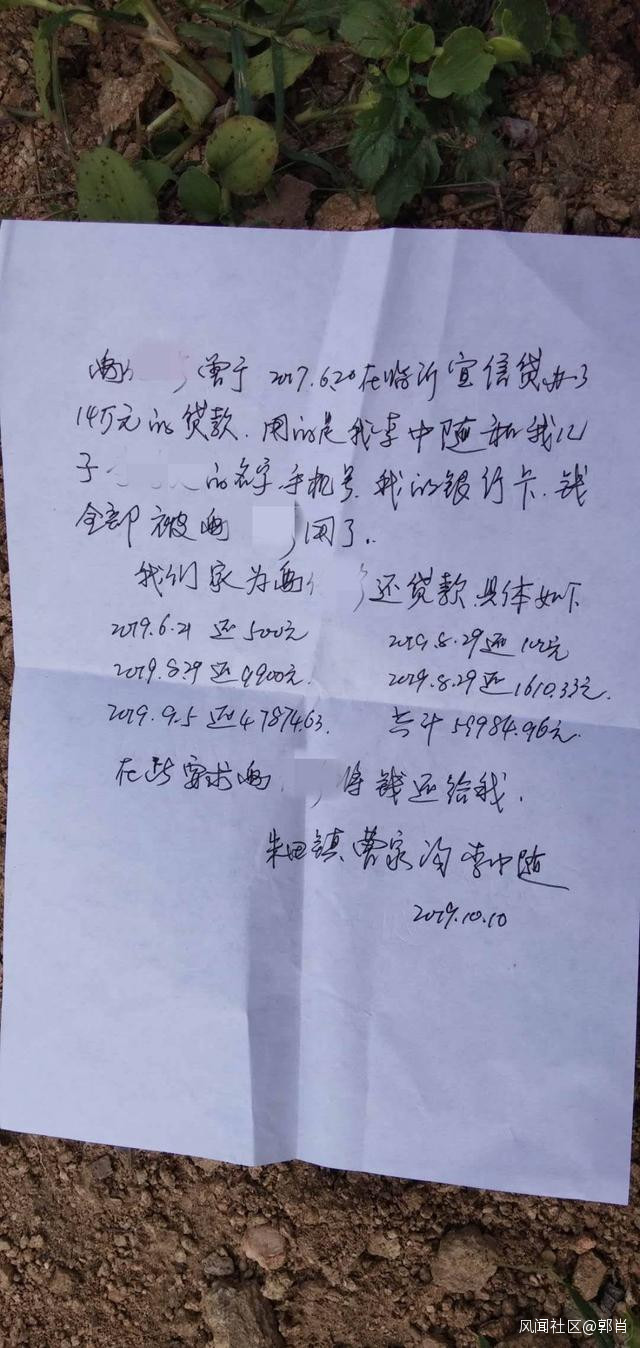 曾于 2017.6.20 在临沂宜信贷办了
14万元的贷款.用的是我李中随和我儿
子 的名字.手机号.我的银行卡.钱
全部被 用了.
我们家为 还贷款.具体如下
2019.6.21 还 500元 2019.8.29还100元
2019.8.29还9900元. 2019.8.29还1610.33元.
2019.9.5还47874.63. 共计59984.96元.
在此要求 将钱还给我.
朱田镇曹家沟李中随
2019.10.10
风闻社区@郭肖